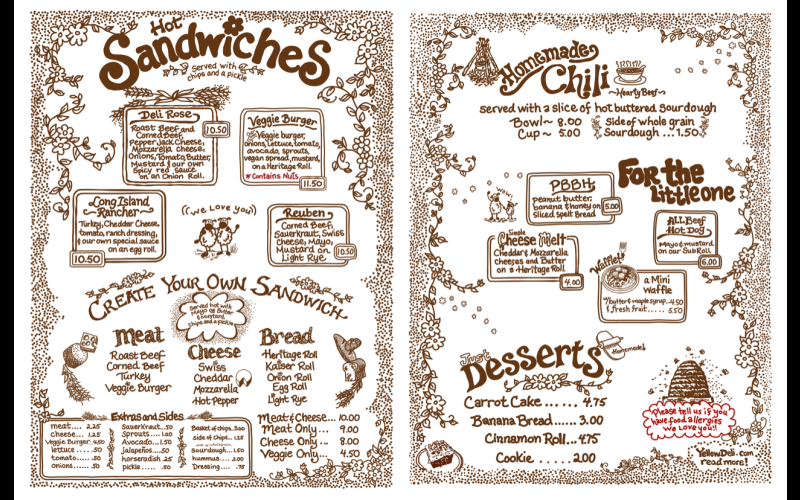 Hot
Sandwiches
Served with
chips and a pickle
Deli Rose
Roast Beef and
Corned Beef,
Pepper Jack Cheese,
Mozzarella cheese,
Onions, Tomato, Butter,
Mustard & our own
Spicy red sauce
on an Onion Roll.
10.50
Veggie Burger
Veggie burger,
onions, lettuce, tomato,
avocado, sprouts,
vegan spread, mustard,
on a Heritage Roll.
* Contains Nuts
11.50
Long Island
Rancher
Turkey, Cheddar Cheese,
tomato, ranch dressing,
& our own special sauce
on an egg roll.
10.50
(We Love you)
Reuben
Corned Beef,
Sauerkraut, Swiss
cheese, Mayo,
Mustard on
Light Rye.
10.50
Create Your Own Sandwich
Served hot with
Mayo or Butter
& Mustard,
chips and a pickle
Meat
Roast Beef
Corned Beef
Turkey
Veggie Burger
Cheese
Swiss
Cheddar
Mozzarella
Hot Pepper
Bread
Heritage Roll
Kaiser Roll
Onion Roll
Egg Roll
Light Rye
Extras and Sides
meat.... 2.25
cheese... 1.25
Veggie Burger 4.50
lettuce .... .50
tomato.... .50
onions.... .50
Sauerkraut .50
Sprouts.... 1.00
Avocado.. 1.50
jalapeños.. .50
horseradish .25
pickle..... .50
Basket of chips.. 3.00
side of chips.. 1.25
Sourdough... 1.50
hummus.... 2.00
Dressing .... .75
Meat & Cheese... 10.00
Meat Only ... 9.00
Cheese Only ... 8.00
Veggie Only ... 4.50
Homemade
Chili
~Hearty Beef~
served with a slice of hot buttered sourdough
Bowl~ 8.00
Cup ~ 5.00
Side of whole grain
Sourdough ... 1.50
For the
Little one
WOW!
PBBH
peanut butter,
banana & honey on
Sliced Spelt Bread
5.00
Simple
Cheese Melt
Cheddar & Mozzarella
cheeses and Butter
on a Heritage Roll
4.00
All Beef
Hot Dog
Mayo & mustard
on our Sub Roll
6.00
Waffles!
a Mini
Waffle
w/butter & maple syrup.. 4.50
& fresh fruit..... 5.50
Just
Desserts
Homemade!
Carrot Cake ...... 4.75
Banana Bread...... 3.00
Cinnamon Roll... 4.75
Cookie ..... 2.00
Please tell us if you
have food allergies
We Love you!!
YellowDeli.com
read more!